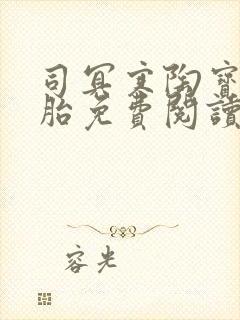 司冥寒陶寶
胎免費閱讀
容光